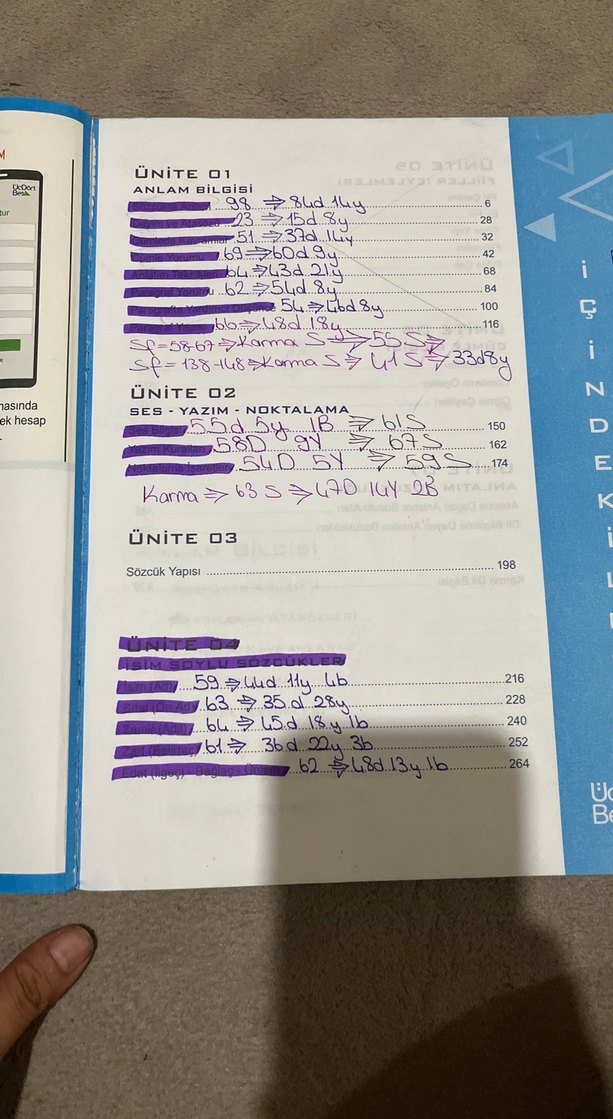 M
ÜçDört
Beş.
tur
masında
ek hesap
ÜNİTE 01
ANLAM BİLGİSİ
Sözcükte Anlam 98 ⇒ 84d 14y 6
23 ⇒ 15d 8y 28
51 ⇒ 37d 14y 32
Cümle Yorumu 69 ⇒ 60d 9y 42
Anlatım Teknikleri 64 ⇒ 43d 21y 68
Paragraf Yorumu 62 ⇒ 54d 8y 84
Paragrafta 54 ⇒ 46d 8y 100
Paragraf Yapısı 66 ⇒ 48d 18y 116
Sf = 58-67 ⇒ Karma S ⇒ 55 S ⇒
Sf = 138-148 ⇒ Karma S ⇒ 41 S ⇒ 33d 8y
ÜNİTE 02
SES - YAZIM - NOKTALAMA
Ses Bilgisi 55d 5y 1B ⇒ 61S 150
Yazım Kuralları 58D 9Y ⇒ 67S 162
Noktalama İşaretleri 54D 5Y ⇒ 59S 174
Karma ⇒ 63 S ⇒ 47D 14Y 2B
ÜNİTE 03
Sözcük Yapısı 198
ÜNİTE 04
İSİM SOYLU SÖZCÜKLER
İsim (Ad) 59 ⇒ 44d 11y 4b 216
Sıfat (Ön Ad) 63 ⇒ 35d 28y 228
Zamir (Adıl) 64 ⇒ 45d 18y 1b 240
Zarf (Belirteç) 61 ⇒ 36d 22y 3b 252
Edat (İlgeç) - Bağlaç - Ünlem 62 ⇒ 48d 13y 1b 264
İÇİNDEKİL